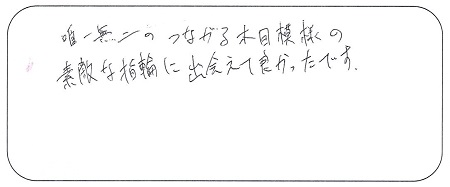 唯一無二の つながる木目模様の
素敵な指輪に出会えて良かったです.